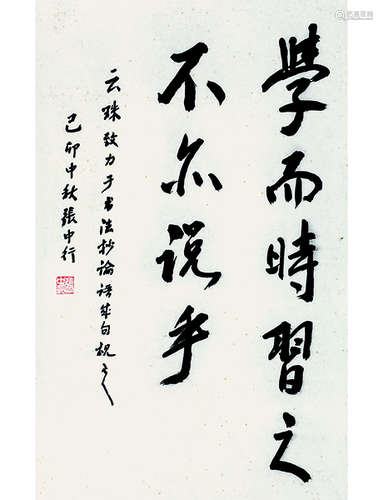 學而時習之
不亦说乎
云珠致力于书法抄論语成句祝之
己卯中秋張中行